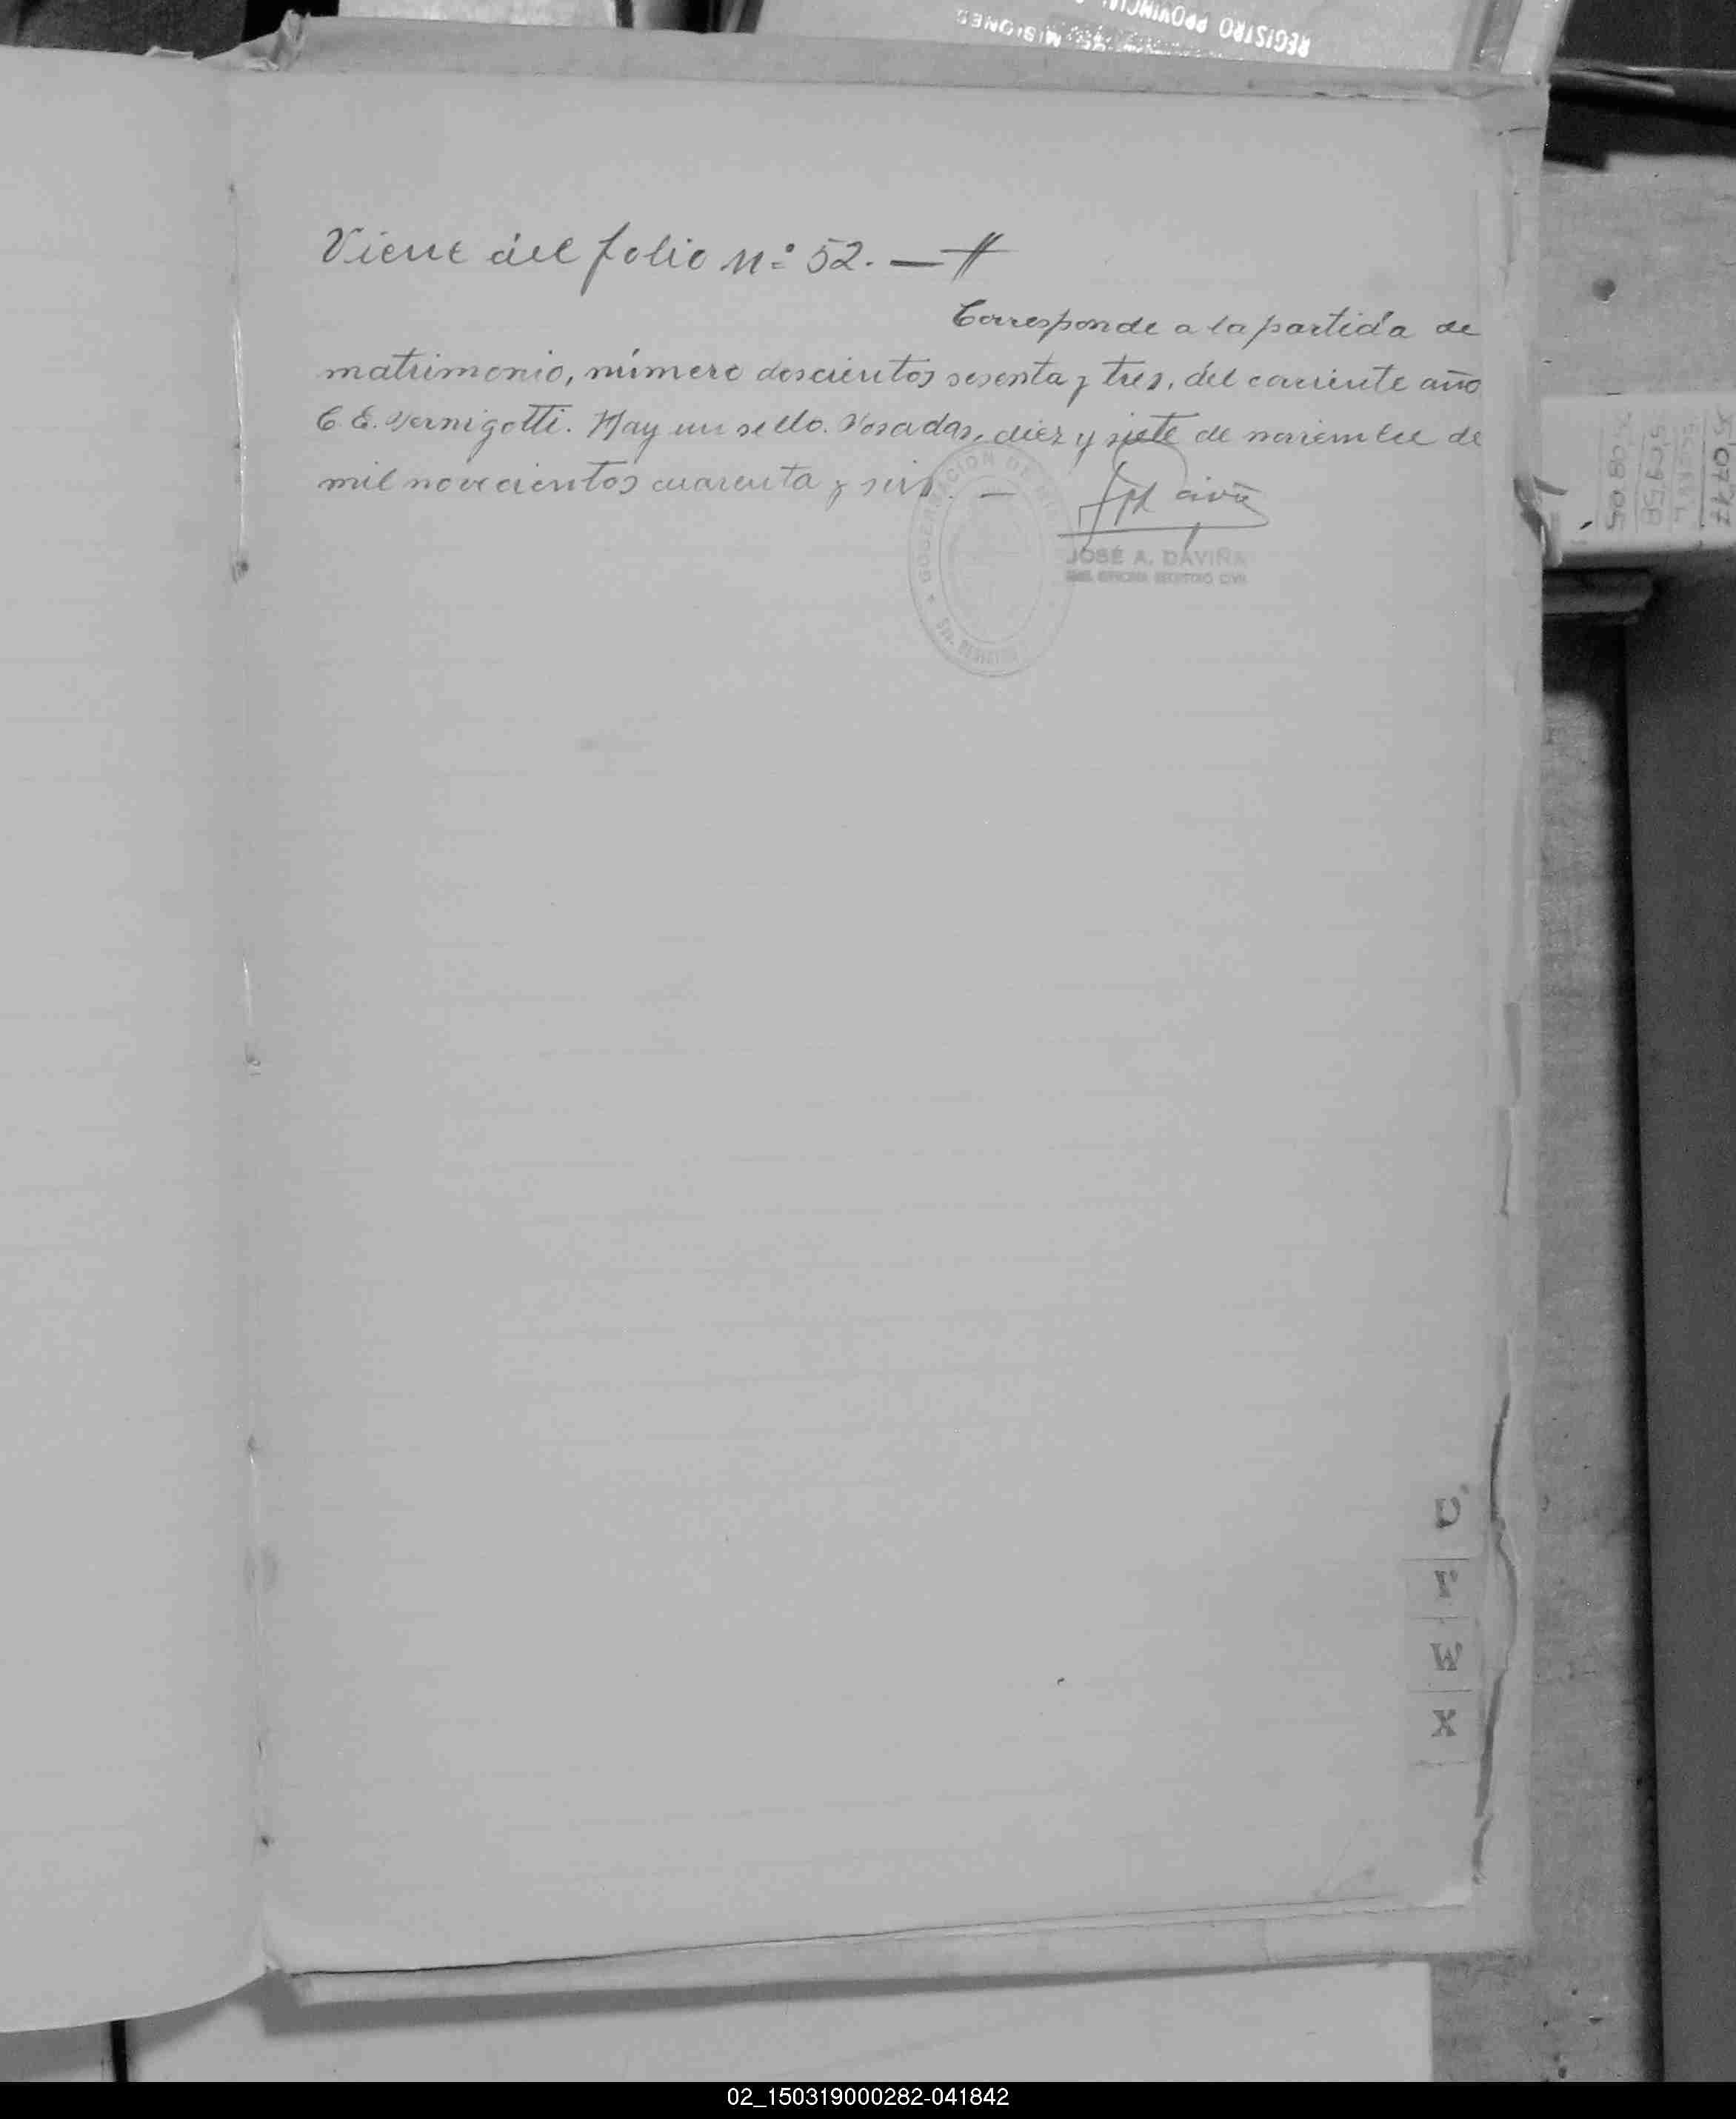 REGISTRO PROVINCIAL
DE MISIONES
Viene del folio Nº 52. —
Corresponde a la partida de
matrimonio, número doscientos sesenta y tres, del corriente año
C. E. Vernigotti. Hay un sello. Posadas, diez y siete de noviembre de
mil novecientos cuarenta y seis. —
GOBERNACION DE
JOSÉ A. DAVIÑA
OFICINA REGISTRO CIVIL
U
W
X
02_150319000282-041842